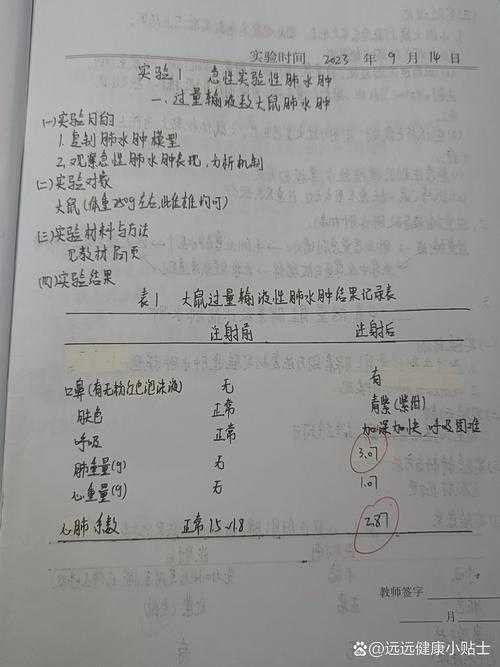 实验时间 2023 年 9 月 14 日
实验1 急性实验性肺水肿
一、过量输液致大鼠肺水肿
(一)实验目的
1.复制肺水肿模型
2.观察急性肺水肿表现,分析机制
(二)实验对象
大鼠(体重250g左右,雌雄均可)
(三)实验材料与方法
见教材
(四)实验结果
表1 大鼠过量输液性肺水肿结果记录表
注射前 注射后
口鼻(有无粉红色泡沫液) 无 有
肤色 正常 青紫(紫绀)
呼吸 正常 加深加快,呼吸困难
肺重量(g) 无 3.07
心重量(g) 无 1.07
心肺系数 正常1.5~1.8 2.87
教师签字
月
@远远健康小贴士